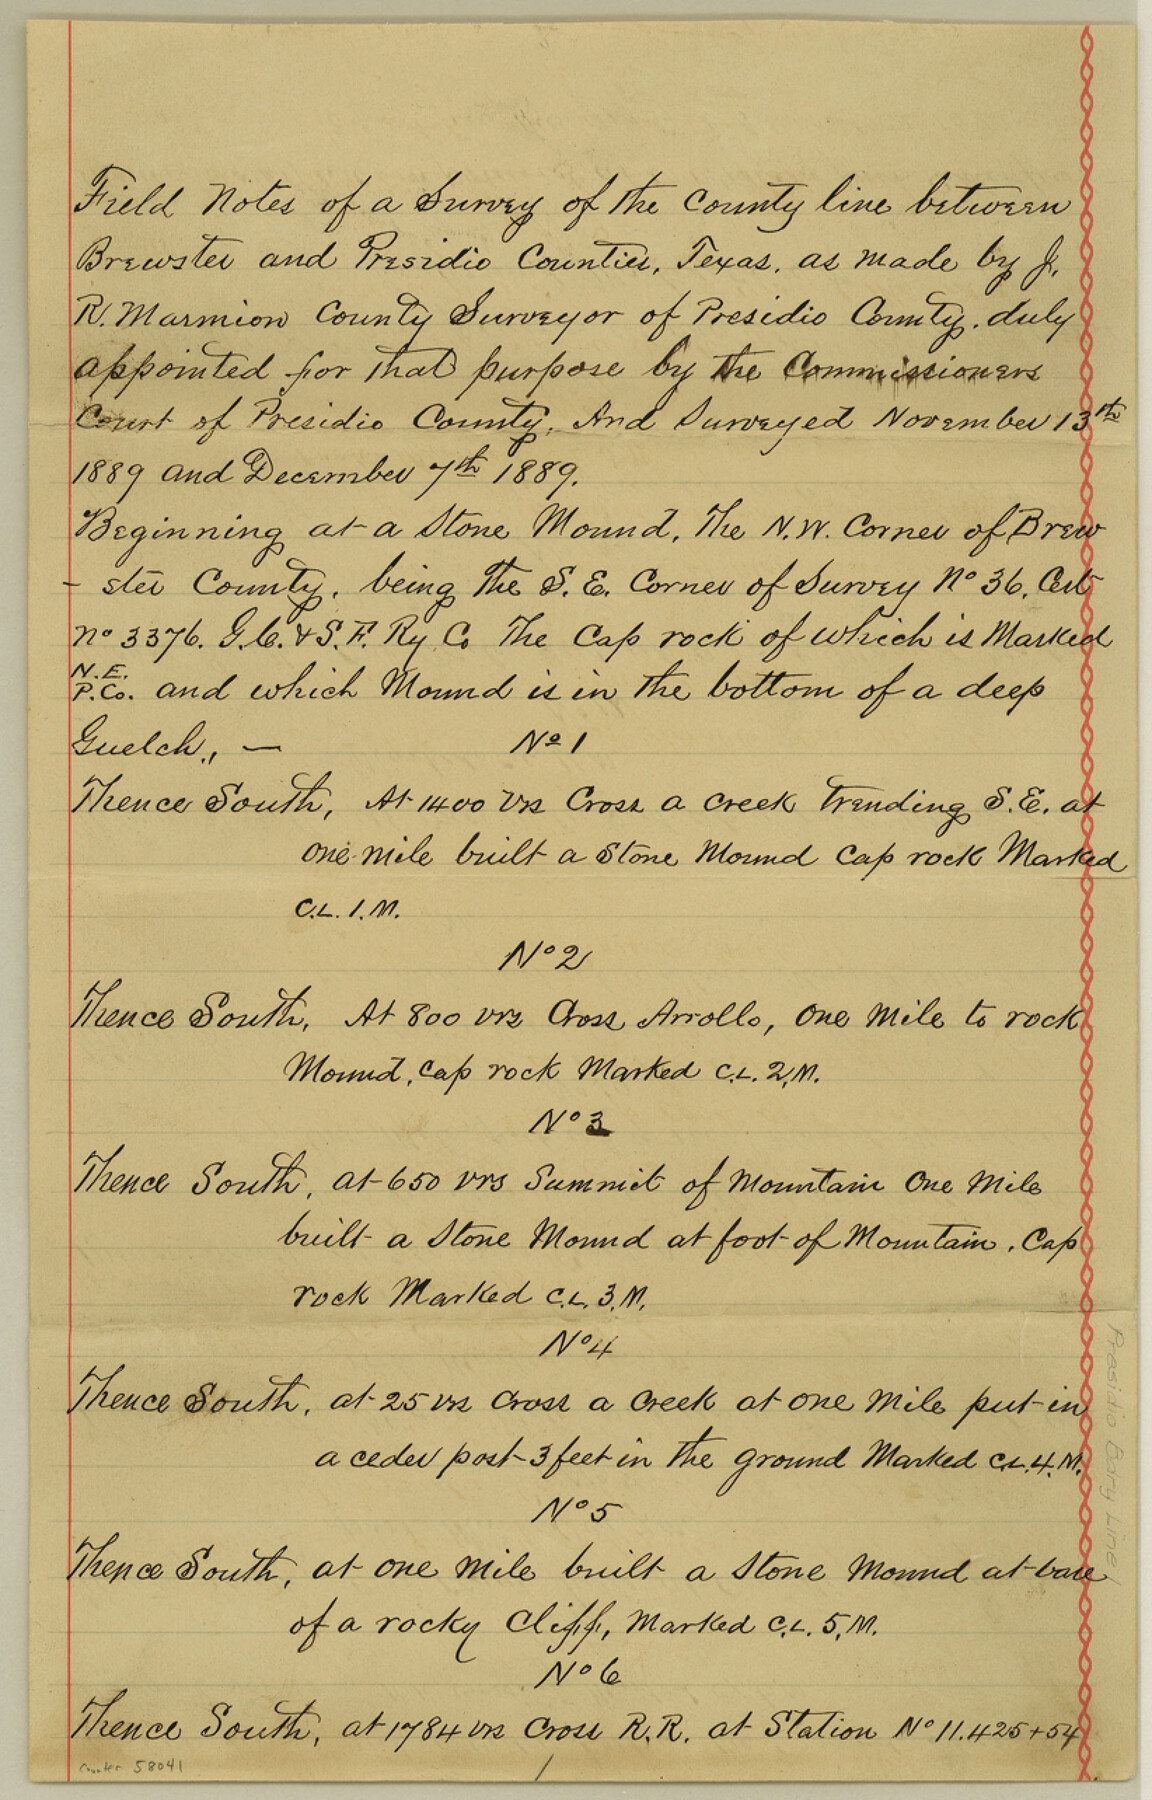 Field Notes of a Survey of the County line between
Brewster and Presidio Counties, Texas, as made by J.
R. Marmion County Surveyor of Presidio County, duly
appointed for that purpose by the Commissioners
Court of Presidio County, And Surveyed November 13th
1889 and December 7th 1889.
Beginning at a Stone Mound, The N.W. Corner of Brew
- ster County, being the S.E. Corner of Survey No 36, Cert
No 3376. G.C. & S.F. Ry Co The Cap rock of which is Marked
N.E.
P.Co. and which Mound is in the bottom of a deep
Guelch, —
No 1
Thence South, At 1400 vrs Cross a creek trending S.E. at
one mile built a Stone Mound Cap rock Marked
C.L. 1. M.
No 2
Thence South, At 800 vrs Cross Arrollo, One Mile to rock
Mound, Cap rock Marked C.L. 2, M.
No 3
Thence South, at 650 vrs Summit of Mountain One Mile
built a Stone Mound at foot of Mountain. Cap
rock Marked C.L. 3, M.
No 4
Thence South, at 25 vrs Cross a Creek at one Mile put in
a ceder post 3 feet in the ground Marked C.L. 4. M.
No 5
Thence South, at one Mile built a Stone Mound at base
of a rocky Cliff, Marked C.L. 5, M.
No 6
Thence South, at 1784 vrs Cross R.R. at Station No 11.425+54
counter 58041
1
Presidio Bdry Line 1